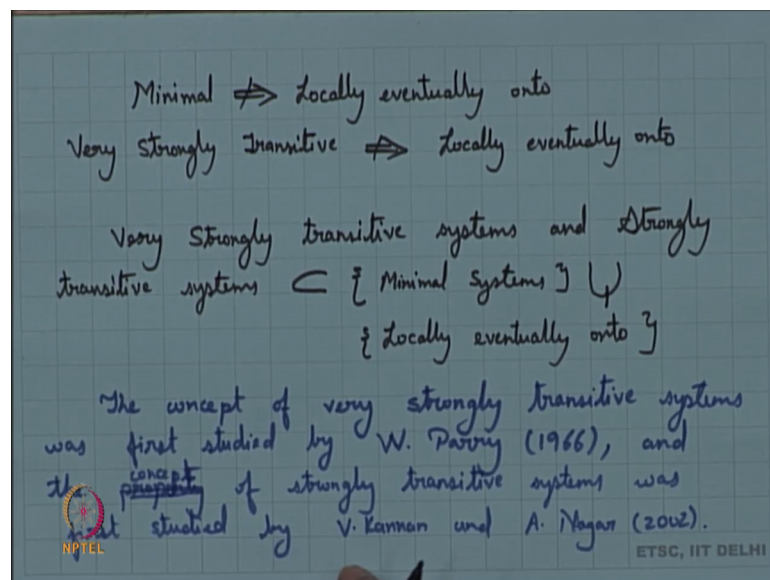 Minimal ⇏ Locally eventually onto
Very Strongly Transitive ⇏ Locally eventually onto
Very Strongly transitive systems and Strongly
transitive systems ⊂ { Minimal Systems } ∪
{ Locally eventually onto }
The concept of very strongly transitive systems
was first studied by W. Parry (1966), and
the concept of strongly transitive systems was
first studied by V. Kannan and A. Nagar (2002).
NPTEL
ETSC, IIT DELHI